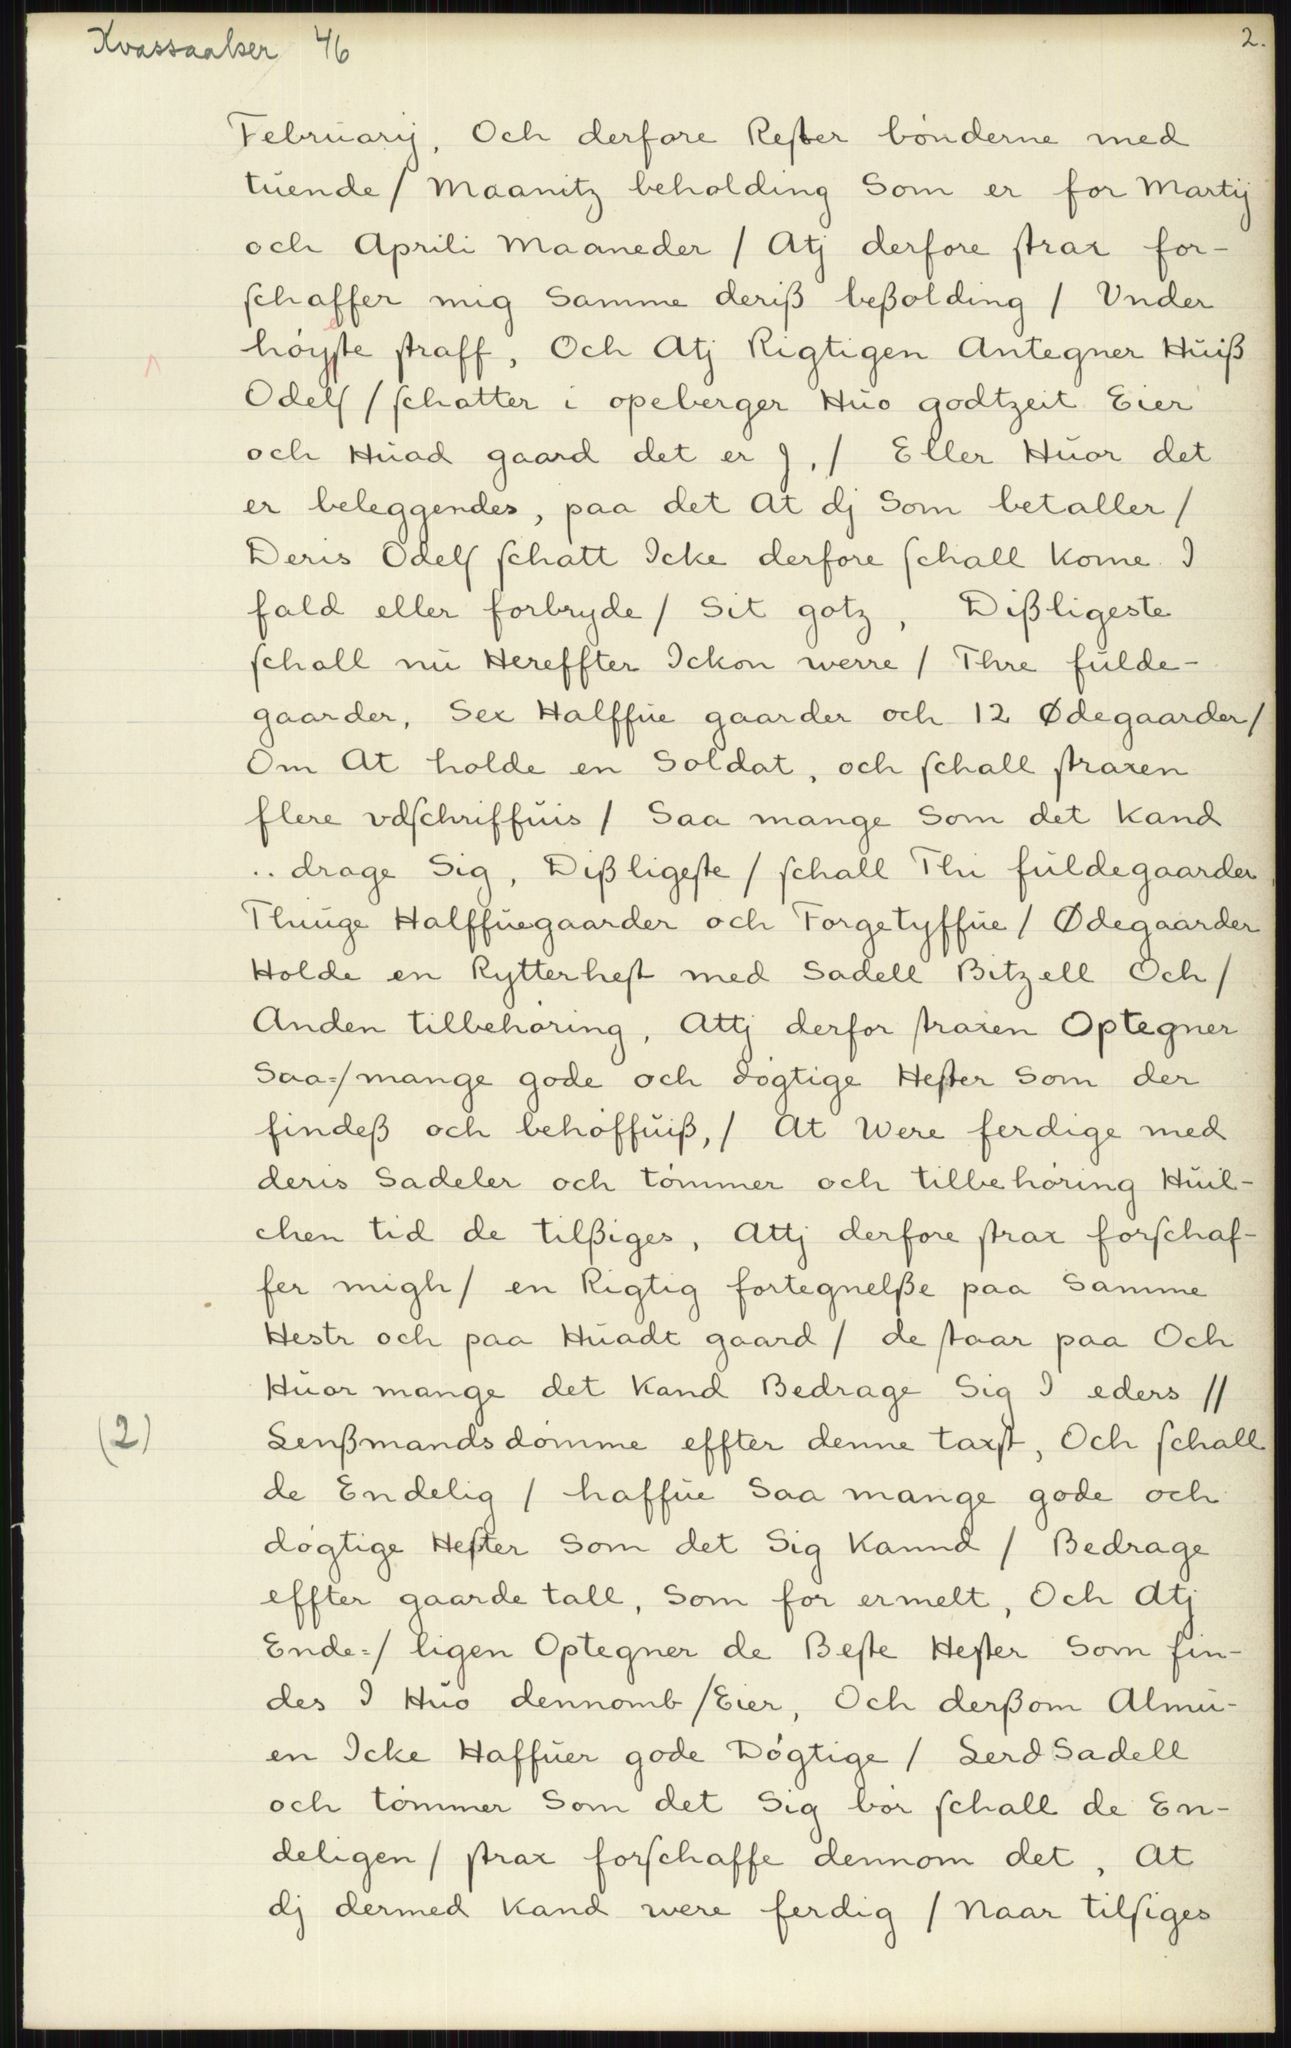 Kvassaaker 46
2.
Februarij, Och derfore Rester bónderne med
tŭende / Maanitz beholding Som er for Martij
och Aprili Maaneder / Atj derfore strax for-
schaffer mig Samme deriß beßolding / Vnder
hóyeste straff, Och Atj Rigtigen Antegner Hŭiß
Odels / schatter i opeberger Hŭo godtzeit Eier
och Hŭad gaard det er J, / Eller Hŭor det
er beleggendes, paa det At dj Som betaller /
Deris Odels schatt Icke derfore schall Kome I
fald eller forbryde / Sit gotz, Dißligeste
schall nŭ Hereffter Ickon werre / Thre fŭlde-
gaarder, Sex Halffŭe gaarder och 12 Ødegaarder /
Om At holde en Soldat, och schall straxen
flere vdschriffŭis / Saa mange Som det Kand
.. drage Sig, Dißligeste / schall Thi fŭldegaarder,
Thiŭge Halffŭegaarder och Forgetyffŭe / Ødegaarder
Holde en Rytterhest med Sadell Bitzell Och /
Anden tilbehóring, Attj derfor straxen Optegner
Saa=/mange gode och dógtige Hester Som der
findeß och behóffŭiß, / At Were ferdige med
deris Sadeler och tómmer och tilbehóring Hŭil-
chen tid de tilßiges, Attj derfore strax forschaf-
fer migh / en Rigtig fortegnelße paa Samme
Hestr och paa Hŭadt gaard / de staar paa Och
Hŭor mange det Kand Bedrage Sig I eders //
(2)
Lenßmandsdómme effter denne taxst, Och schall
de Endelig / haffŭe Saa mange gode och
dógtige Hester Som det Sig Kannd / Bedrage
effter gaarde tall, Som for ermelt, Och Atj
Ende=/ligen Optegner de Beste Hester Som fin-
des I Hŭo dennomb / Eier, Och derßom Almŭ-
en Icke Haffŭer gode Dógtige / Lerd Sadell
och tómmer Som det Sig bór schall de En-
deligen / strax forschaffe dennom det, At
dj dermed Kand were ferdig / Naar tilsiges